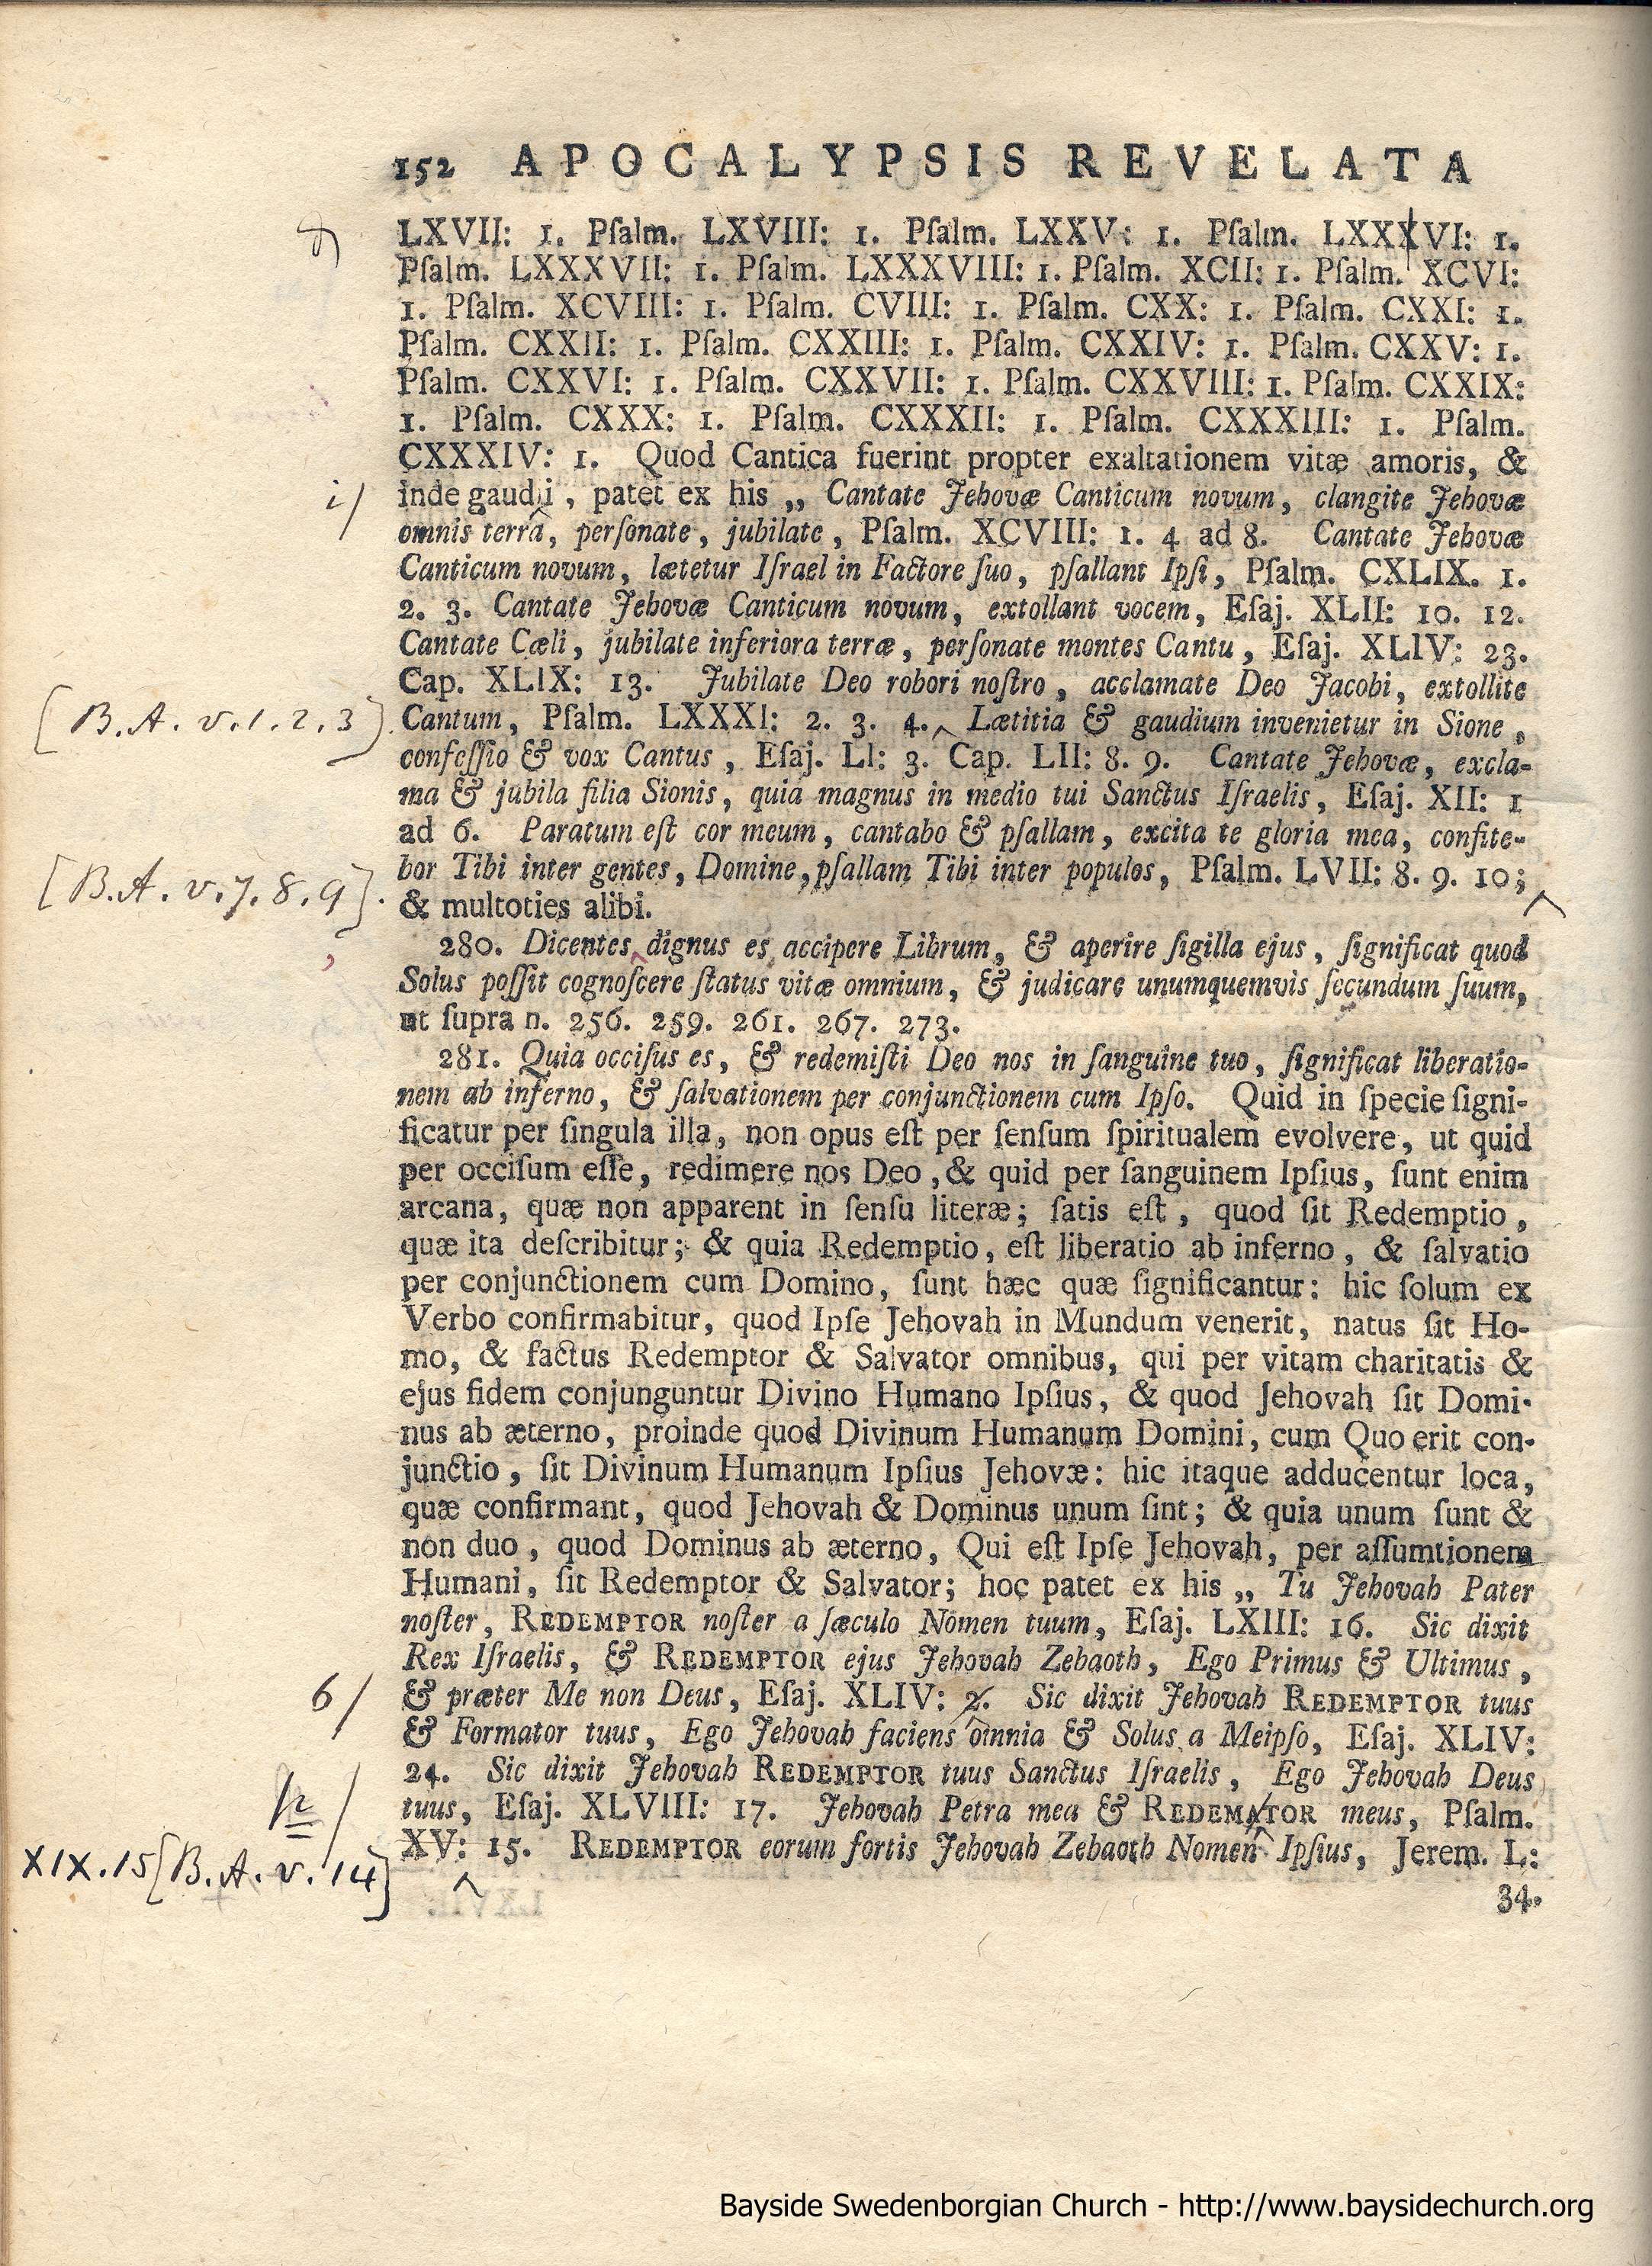 152 APOCALYPSIS REVELATA
LXVII: 1. Pſalm. LXVIII: 1. Pſalm. LXXV: 1. Pſalm. LXXXVI: 1.
Pſalm. LXXXVII: 1. Pſalm. LXXXVIII: 1. Pſalm. XCII: 1. Pſalm. XCVI:
1. Pſalm. XCVIII: 1. Pſalm. CVIII: 1. Pſalm. CXX: 1. Pſalm. CXXI: 1.
Pſalm. CXXII: 1. Pſalm. CXXIII: 1. Pſalm. CXXIV: 1. Pſalm. CXXV: 1.
Pſalm. CXXVI: 1. Pſalm. CXXVII: 1. Pſalm. CXXVIII: 1. Pſalm. CXXIX:
1. Pſalm. CXXX: 1. Pſalm. CXXXII: 1. Pſalm. CXXXIII: 1. Pſalm.
CXXXIV: 1. Quod Cantica fuerint propter exaltationem vitæ amoris, &
i/ inde gaudii, patet ex his „ Cantate Jehovæ Canticum novum, clangite Jehovæ
omnis terra, perſonate, jubilate, Pſalm. XCVIII: 1. 4 ad 8. Cantate Jehovæ
Canticum novum, lætetur Iſrael in Factore ſuo, pſallant Ipſi, Pſalm. CXLIX. 1.
2. 3. Cantate Jehovæ Canticum novum, extollant vocem, Eſaj. XLII: 10. 12.
Cantate Cæli, jubilate inferiora terræ, perſonate montes Cantu, Eſaj. XLIV: 23.
Cap. XLIX: 13. Jubilate Deo robori noſtro, acclamate Deo Jacobi, extollite
[B.A. v. 1. 2. 3]. Cantum, Pſalm. LXXXI: 2. 3. 4. Lætitia & gaudium invenietur in Sione,
confeſſio & vox Cantus, Eſaj. LI: 3. Cap. LII: 8. 9. Cantate Jehovæ, excla-
ma & jubila filia Sionis, quia magnus in medio tui Sanctus Iſraelis, Eſaj. XII: 1
ad 6. Paratum eſt cor meum, cantabo & pſallam, excita te gloria mea, confite-
[B.A. v. 7. 8. 9]. bor Tibi inter gentes, Domine, pſallam Tibi inter populos, Pſalm. LVII: 8. 9. 10;
& multoties alibi.
, 280. Dicentes dignus es accipere Librum, & aperire ſigilla ejus, ſignificat quod
Solus poſſit cognoſcere ſtatus vitæ omnium, & judicare unumquemvis ſecundum ſuum,
ut ſupra n. 256. 259. 261. 267. 273.
281. Quia occiſus es, & redemiſti Deo nos in ſanguine tuo, ſignificat liberatio-
nem ab inferno, & ſalvationem per conjunctionem cum Ipſo. Quid in ſpecie ſigni-
ficatur per ſingula illa, non opus eſt per ſenſum ſpiritualem evolvere, ut quid
per occiſum eſſe, redimere nos Deo, & quid per ſanguinem Ipſius, ſunt enim
arcana, quæ non apparent in ſenſu literæ; ſatis eſt, quod ſit Redemptio,
quæ ita deſcribitur; & quia Redemptio, eſt liberatio ab inferno, & ſalvatio
per conjunctionem cum Domino, ſunt hæc quæ ſignificantur: hic ſolum ex
Verbo confirmabitur, quod Ipſe Jehovah in Mundum venerit, natus ſit Ho-
mo, & factus Redemptor & Salvator omnibus, qui per vitam charitatis &
ejus fidem conjunguntur Divino Humano Ipſius, & quod Jehovah ſit Domi-
nus ab æterno, proinde quod Divinum Humanum Domini, cum Quo erit con-
junctio, ſit Divinum Humanum Ipſius Jehovæ: hic itaque adducentur loca,
quæ confirmant, quod Jehovah & Dominus unum ſint; & quia unum ſunt &
non duo, quod Dominus ab æterno, Qui eſt Ipſe Jehovah, per aſſumtionem
Humani, ſit Redemptor & Salvator; hoc patet ex his „ Tu Jehovah Pater
noſter, REDEMPTOR noſter a ſæculo Nomen tuum, Eſaj. LXIII: 16. Sic dixit
Rex Iſraelis, & REDEMPTOR ejus Jehovah Zebaoth, Ego Primus & Ultimus,
6/ & præter Me non Deus, Eſaj. XLIV: 2. Sic dixit Jehovah REDEMPTOR tuus
& Formator tuus, Ego Jehovah faciens omnia & Solus a Meipſo, Eſaj. XLIV:
24. Sic dixit Jehovah REDEMPTOR tuus Sanctus Iſraelis, Ego Jehovah Deus
p/ tuus, Eſaj. XLVIII: 17. Jehovah Petra mea & REDEMATOR meus, Pſalm.
XIX. 15 [B.A. v. 14] XV: 15. REDEMPTOR eorum fortis Jehovah Zebaoth Nomen Ipſius, Jerem. L:
34.
Bayside Swedenborgian Church - http://www.baysidechurch.org